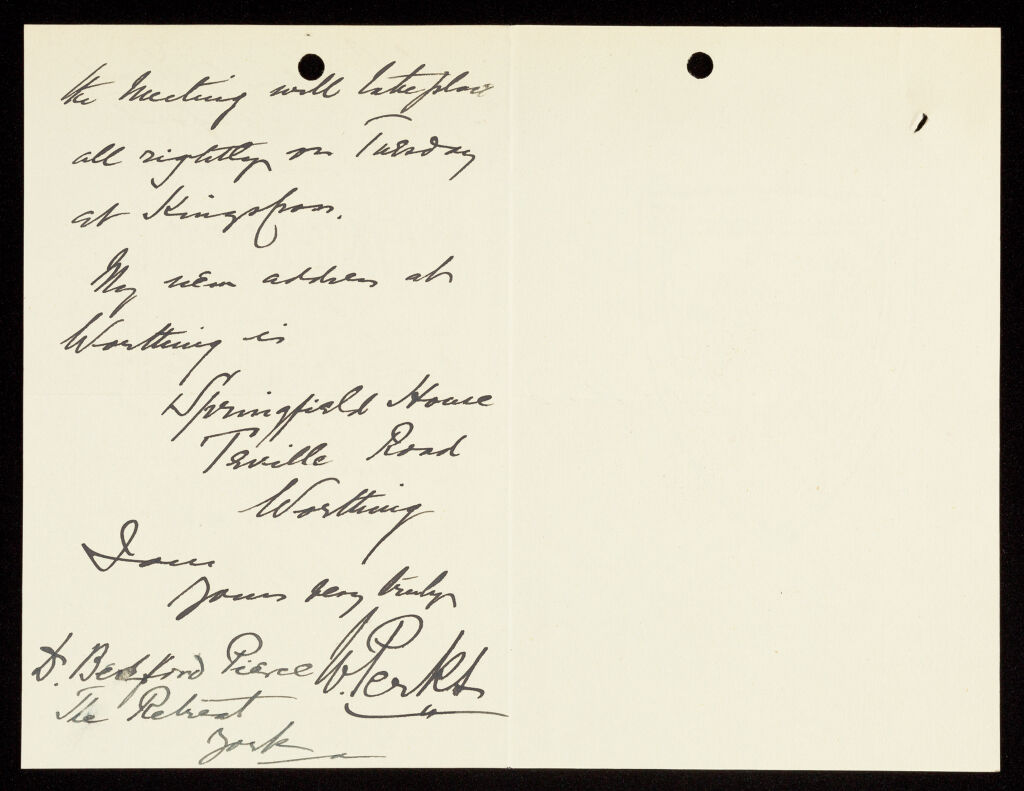 the Meeting will take place
all rightly on Tuesday
at Kings
My new address at
Worthing is
Springfield House
Teville Road
Worthing
I am
Yours very truly
W. Perks
Dr. Bedford Pierce
The Retreat
York